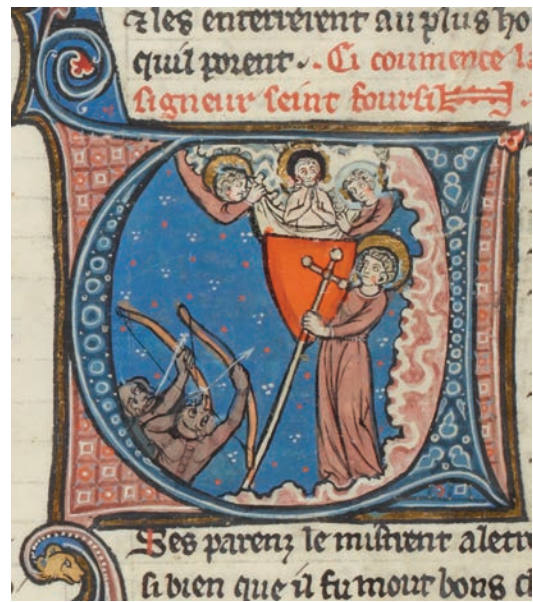 ⁊ les enterrerent au plus ho
quil porent. . Ci coumence la
signeur seint foursi
Ses parenz le mistrent aletre
si bien que il fu mout bons cl